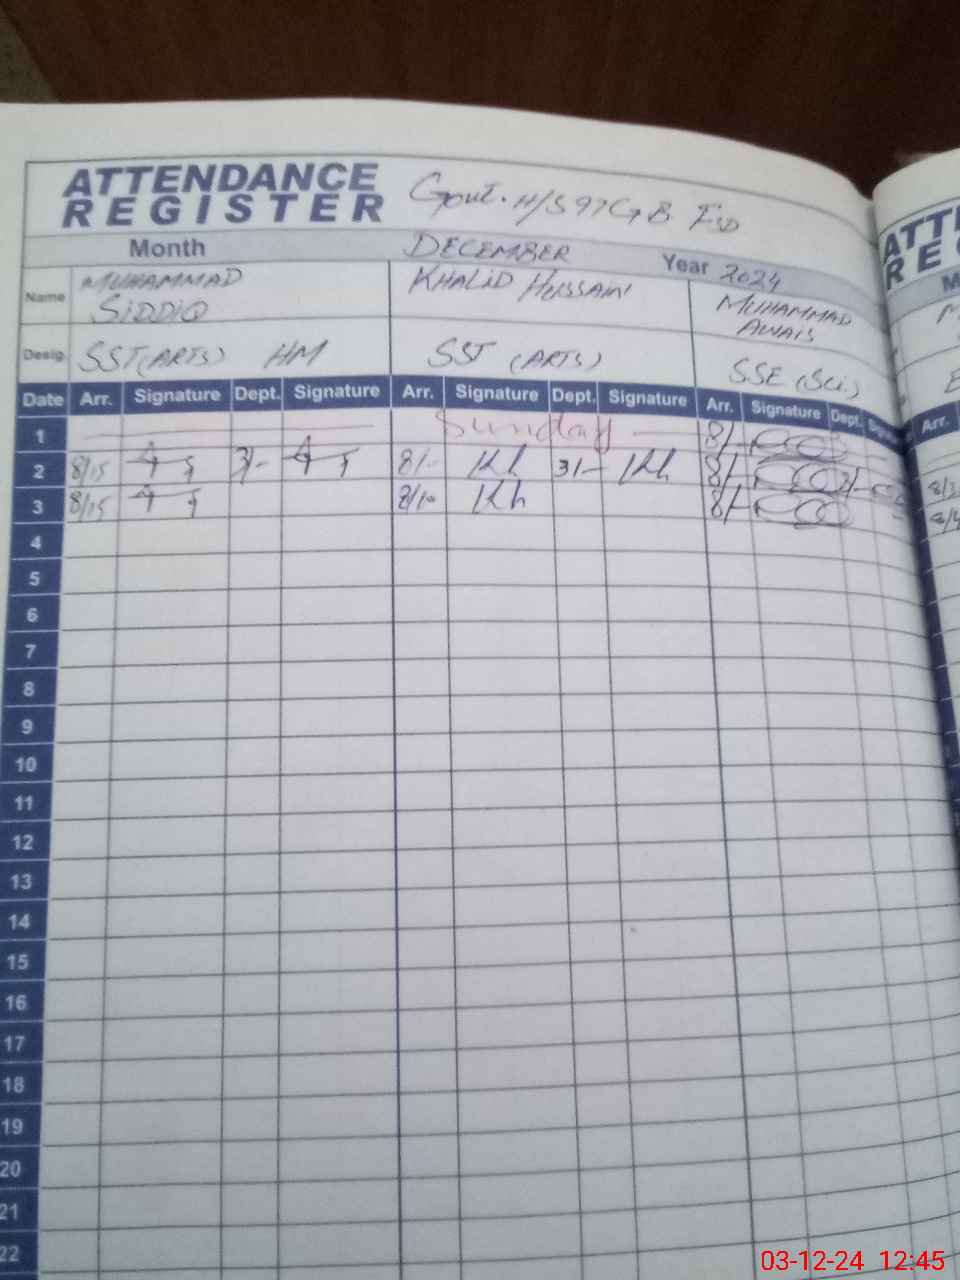 ATTENDANCE
REGISTER
Govt. H/S 97 G B FSD
Month DECEMBER Year 2024
Name MUHAMMAD SIDDIQ KHALID HUSSAIN MUHAMMAD AWAIS
Desig. SST (ARTS) HM SST (ARTS) SSE (Sci)
Date Arr. Signature Dept. Signature Arr. Signature Dept. Signature Arr. Signature Dept. Arr.
1 Sunday 8/-
2 8/15 3/- 8/- Kh 3/- Kh 8/-
3 8/15 8/10 Kh 8/-
4
5
6
7
8
9
10
11
12
13
14
15
16
17
18
19
20
21
22
03-12-24 12:45